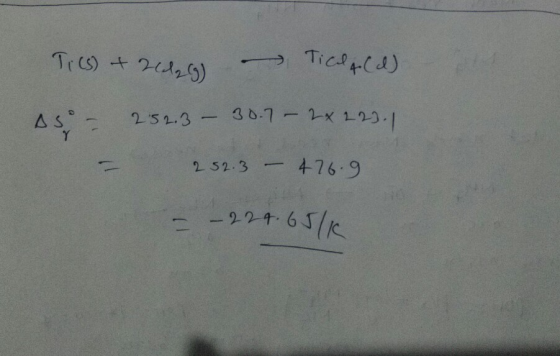 Ti(s) + 2Cl₂(g) ⟶ TiCl₄(l)
ΔSᵣ° = 252.3 - 30.7 - 2×223.1
= 252.3 - 476.9
= -224.6 J/K